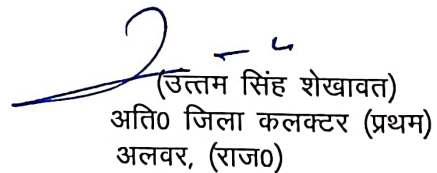 (उत्तम सिंह शेखावत)
अति0 जिला कलक्टर (प्रथम)
अलवर, (राज0)